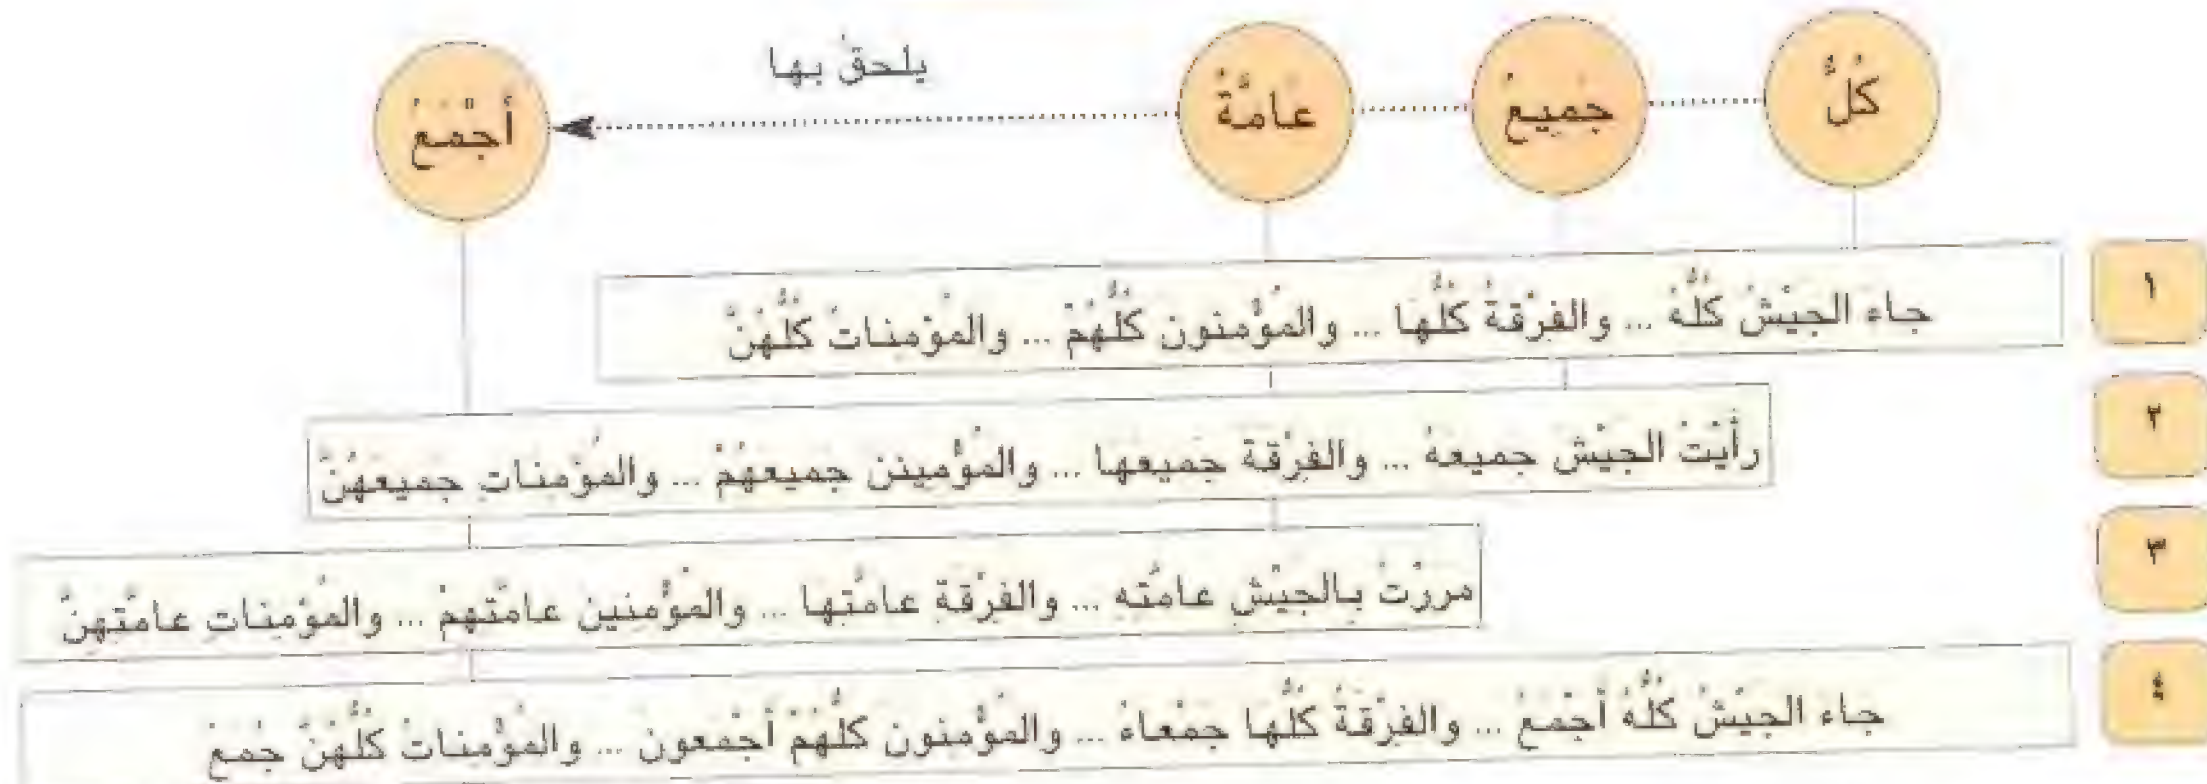 كُلُّ جَمِيعُ عَامَّةُ يلحقُ بها أَجْمَعُ
١ جاء الجيْشُ كُلُّهُ ... والفِرْقَةُ كُلُّها ... والمؤْمنون كُلُّهُمْ ... والمؤْمِناتُ كُلُّهُنَّ
٢ رأيْتُ الجيْشَ جميعهُ ... والفِرْقةَ جميعها ... والمؤْمينن جميعهُمْ ... والمؤْمناتِ جميعهُنَّ
٣ مررْتُ بالجيْشِ عامّتِه ... والفِرْقةِ عامّتِها ... والمؤْمنين عامّتهِمْ ... والمؤْمنات عامّتهِنَّ
٤ جاء الجيْشُ كُلُّهُ أجْمعُ ... والفِرْقةُ كُلُّها جمْعاءُ ... والمؤْمنون كُلُّهُمْ أجْمعون ... والمؤْمناتُ كُلُّهُنَّ جُمعُ